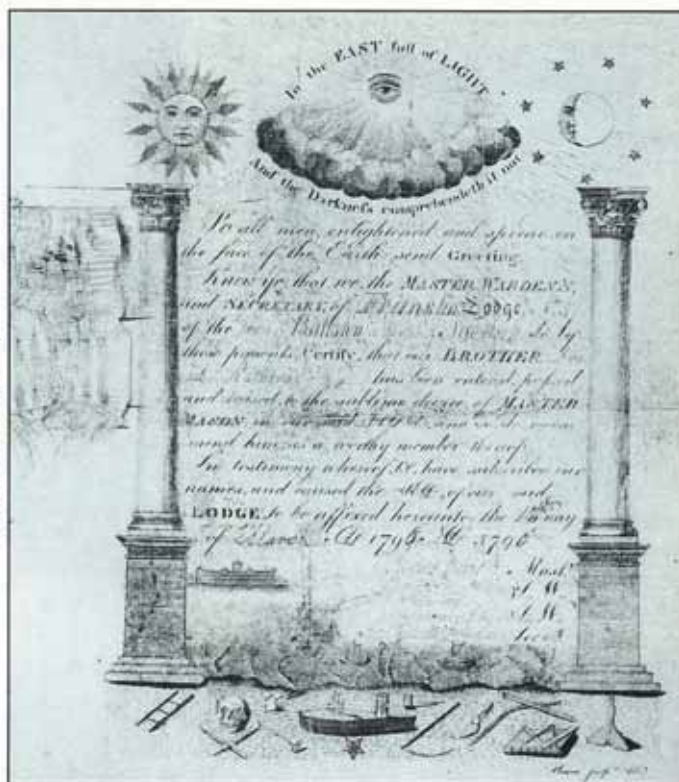 In the EAST full of LIGHT
And the Darkness comprehendeth it not
To all men, enlightened and spread on
the face of the Earth send Greeting.
Know ye, that we, the MASTER, WARDENS,
and SECRETARY, of Lodge,
of the do by
these presents, Certify, that our BROTHER
has been entered, passed
and raised, to the sublime degree, of MASTER
MASON, in our said and we do recom
mend him, as a, worthy member thereof.
In testimony whereof We, have subscribed our
names, and caused the of our said
LODGE, to be affixed hereunto, the day
of AD 1796 5796
Mast.
S. W
J. W